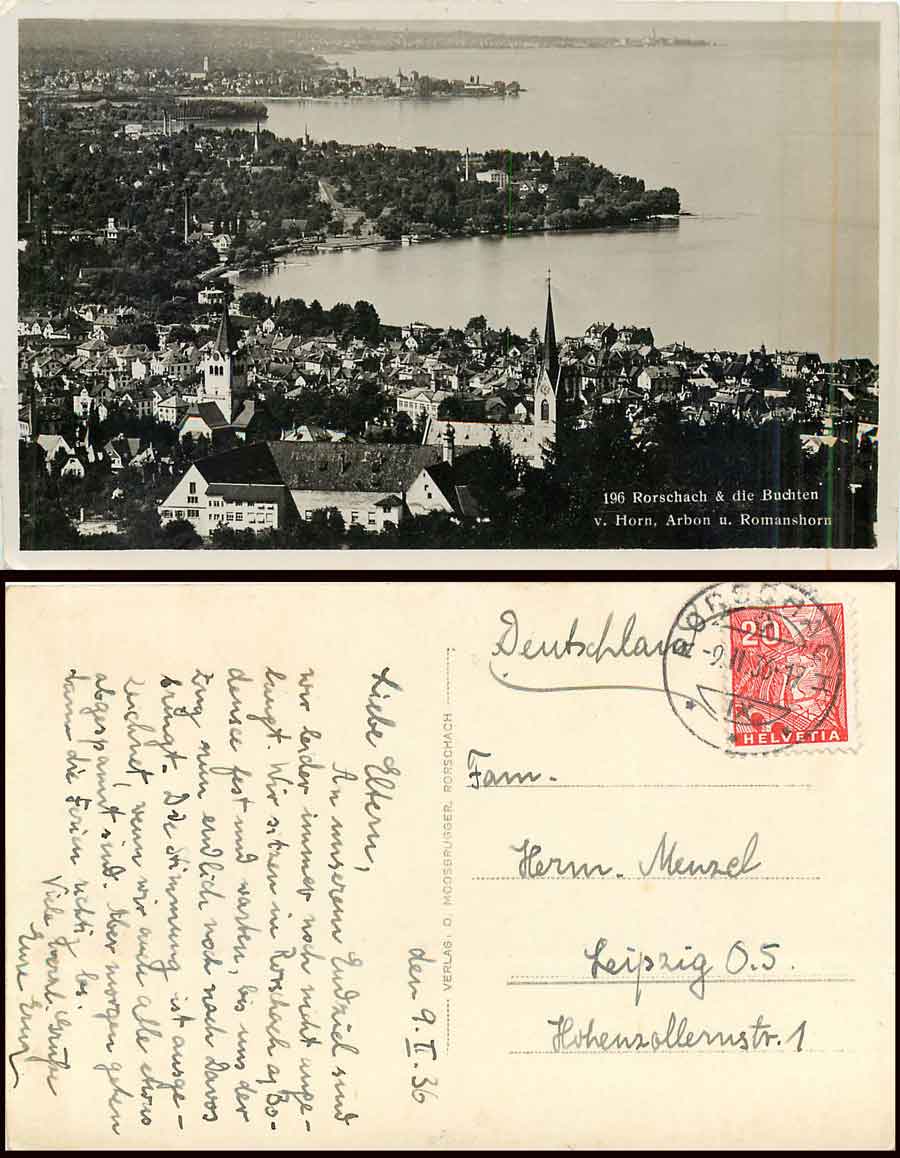 196 Rorschach & die Buchten
v. Horn, Arbon u. Romanshorn
Deutschland
RORSCHACH
-9.II.36-18
20
HELVETIA
Fam.
Herrn. Menzel
Leipzig O.5.
Hohenzollernstr. 1
VERLAG: O. MOOSBRUGGER, RORSCHACH
den 9. II. 36
Liebe Eltern,
An unserem Endziel sind
wir leider immer noch nicht ange-
langt. Wir sitzen in Rorschach a/Bo-
densee fest und warten, bis uns der
Zug nun endlich noch nach Davos
bringt. Die Stimmung ist ausge-
zeichnet, wenn wir auch alle etwas
abgespannt sind. Aber morgen gehen
dann die Ferien richtig los.
Viele herzl. Grüße
Eure